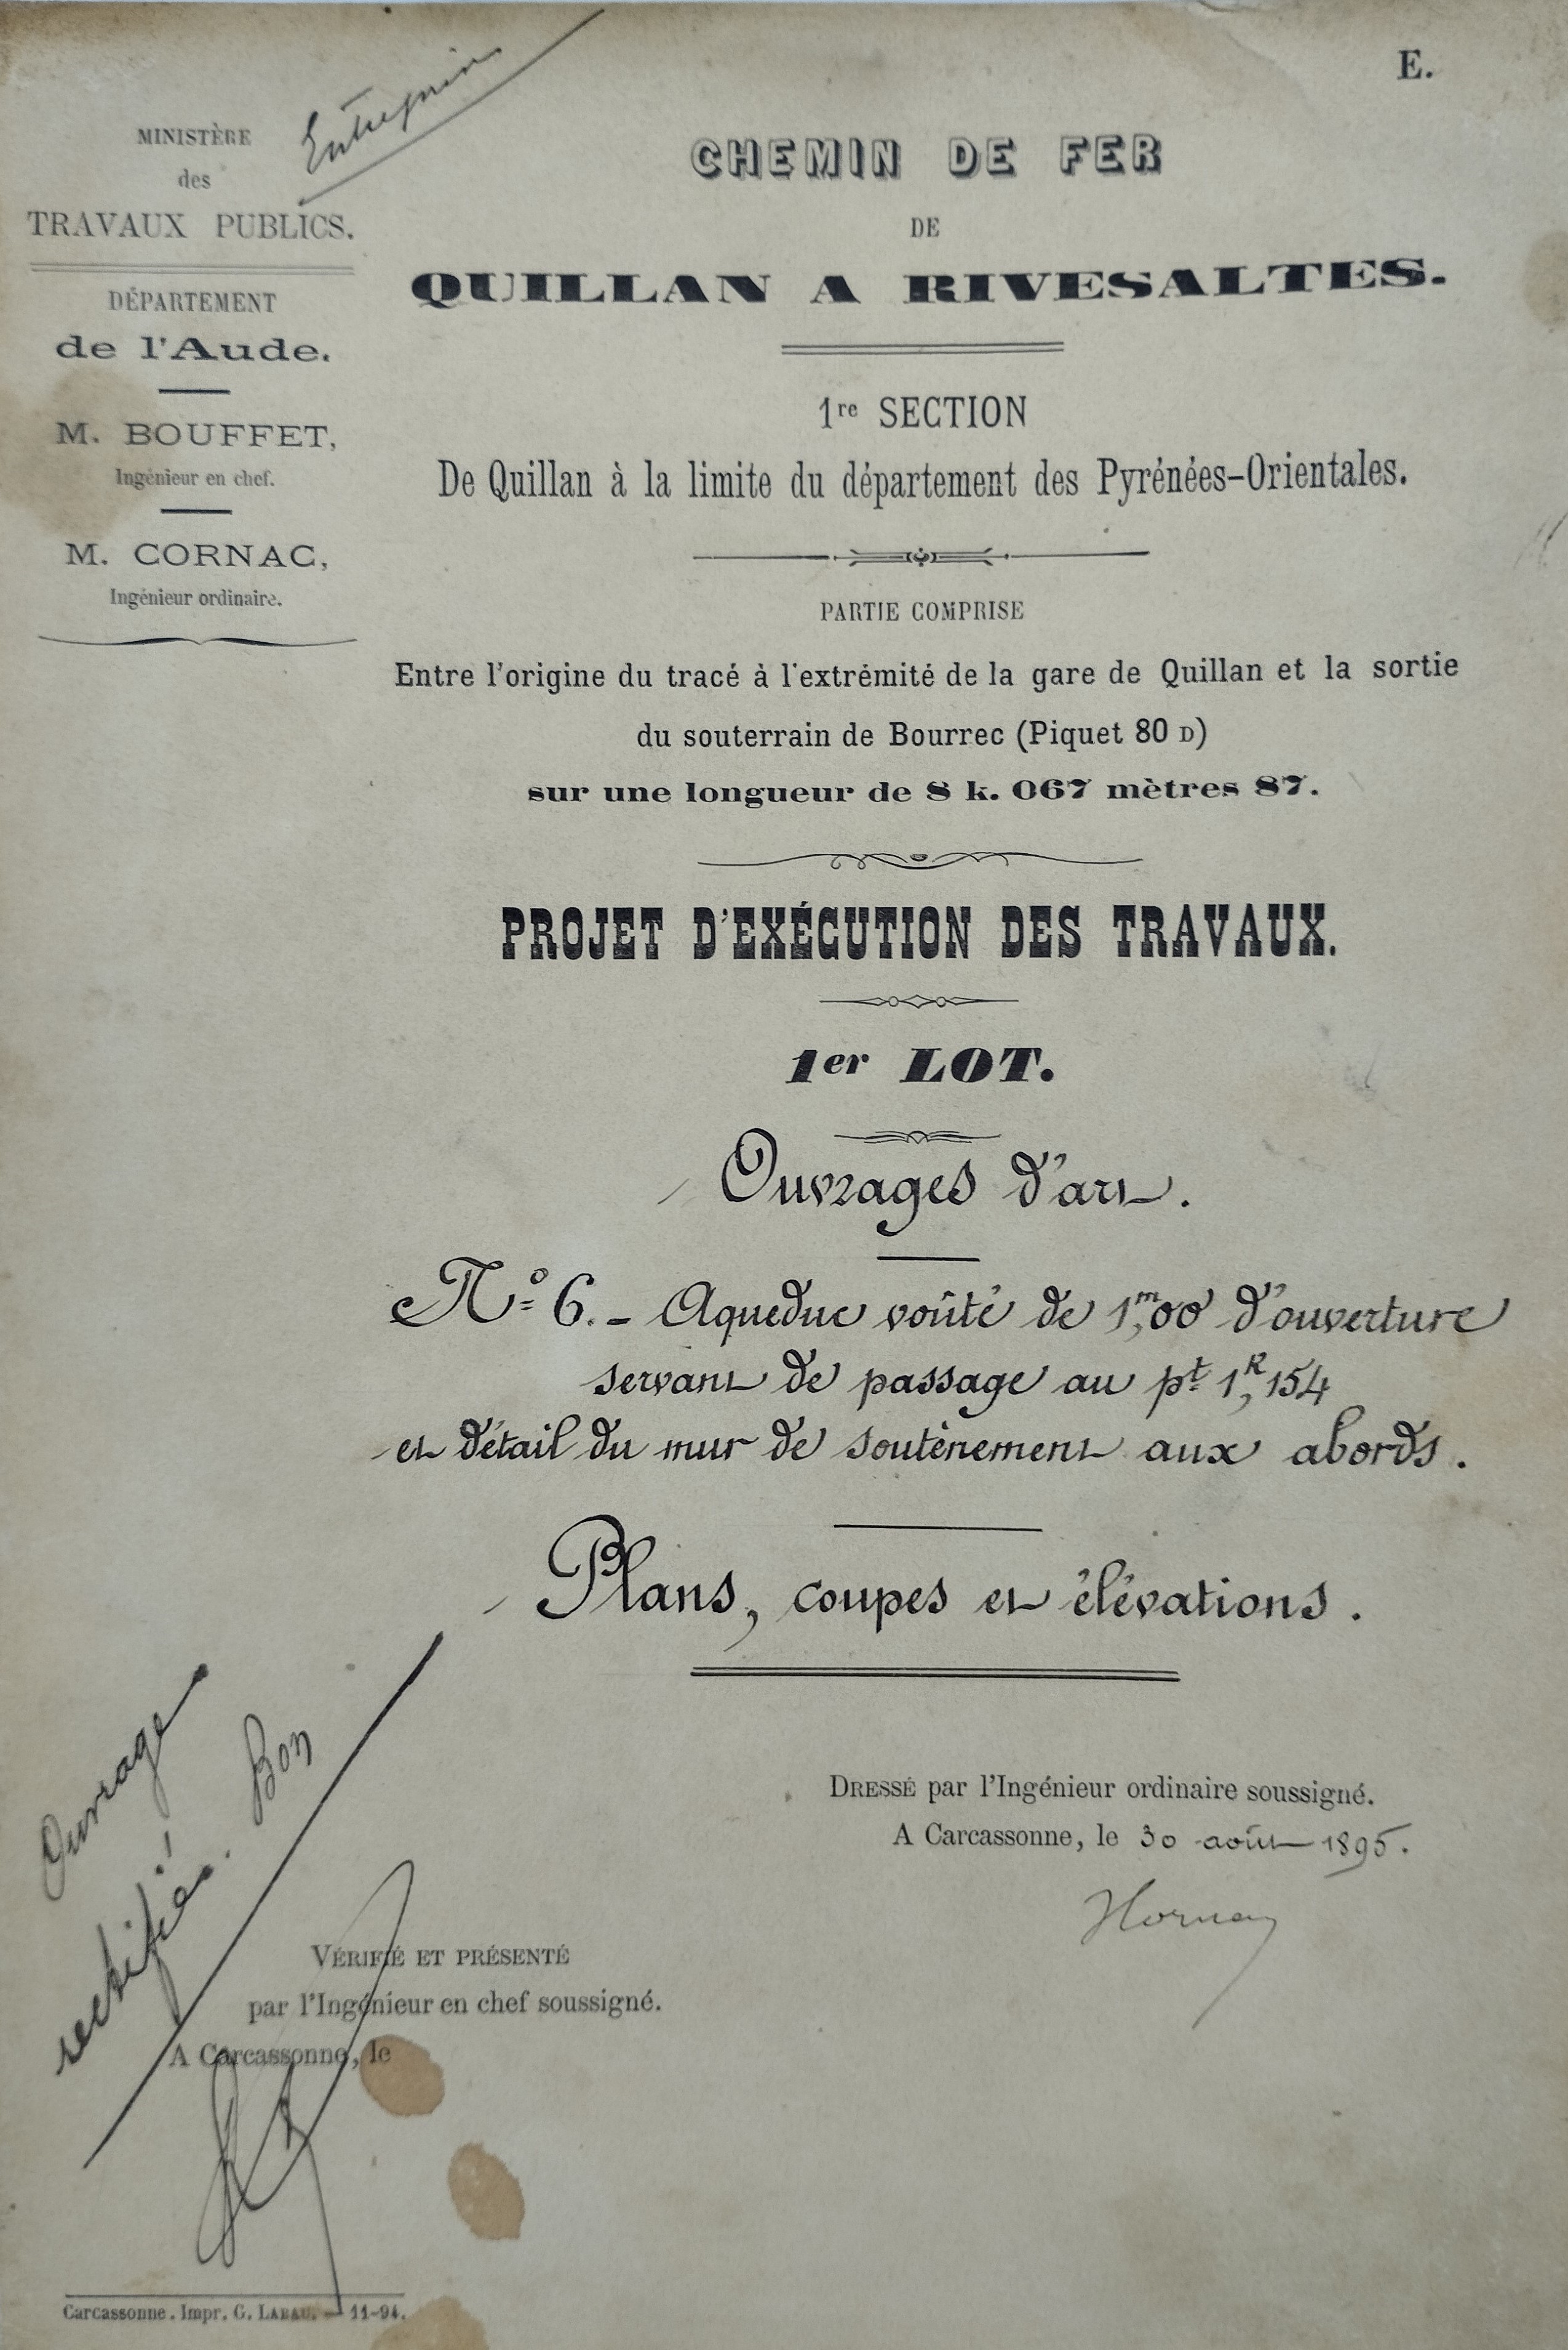 E.
Entreprise
MINISTÈRE
des
TRAVAUX PUBLICS.
DÉPARTEMENT
de l'Aude.
M. BOUFFET,
Ingénieur en chef.
M. CORNAC,
Ingénieur ordinaire.
CHEMIN DE FER
DE
QUILLAN A RIVESALTES.
1re SECTION
De Quillan à la limite du département des Pyrénées-Orientales.
PARTIE COMPRISE
Entre l'origine du tracé à l'extrémité de la gare de Quillan et la sortie
du souterrain de Bourrec (Piquet 80 D)
sur une longueur de 8 k. 067 mètres 87.
PROJET D'EXÉCUTION DES TRAVAUX.
1er LOT.
Ouvrages d'art.
Nº 6. - Aqueduc voûté de 1,m00 d'ouverture
servant de passage au pt 1,K154
et détail du mur de soutènement aux abords.
Plans, coupes et élévations.
Ouvrage
rectifié. Bon
DRESSÉ par l'Ingénieur ordinaire soussigné.
A Carcassonne, le 30 août 1895.
VÉRIFIÉ ET PRÉSENTÉ
par l'Ingénieur en chef soussigné.
A Carcassonne, le
Carcassonne. Impr. G. LABAU. — 11-94.